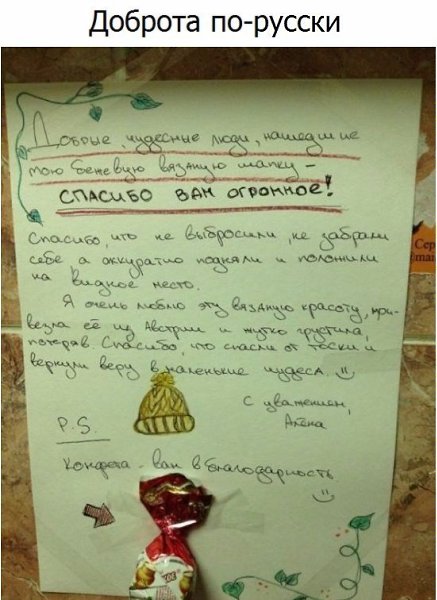 Доброта по-русски
Добрые, чудесные люди, нашедшие
мою бежевую вязаную шапку –
СПАСИБО ВАМ ОГРОМНОЕ!
Спасибо, что не выбросили, не забрали
себе, а аккуратно подняли и положили
на видное место.
Я очень люблю эту вязаную красоту, при-
везла её из Австрии и жутко грустила,
потеряв. Спасибо, что спасли от тоски и
вернули веру в маленькие чудеса.
С уважением,
Алёна
P.S.
Конфета - вам в благодарность